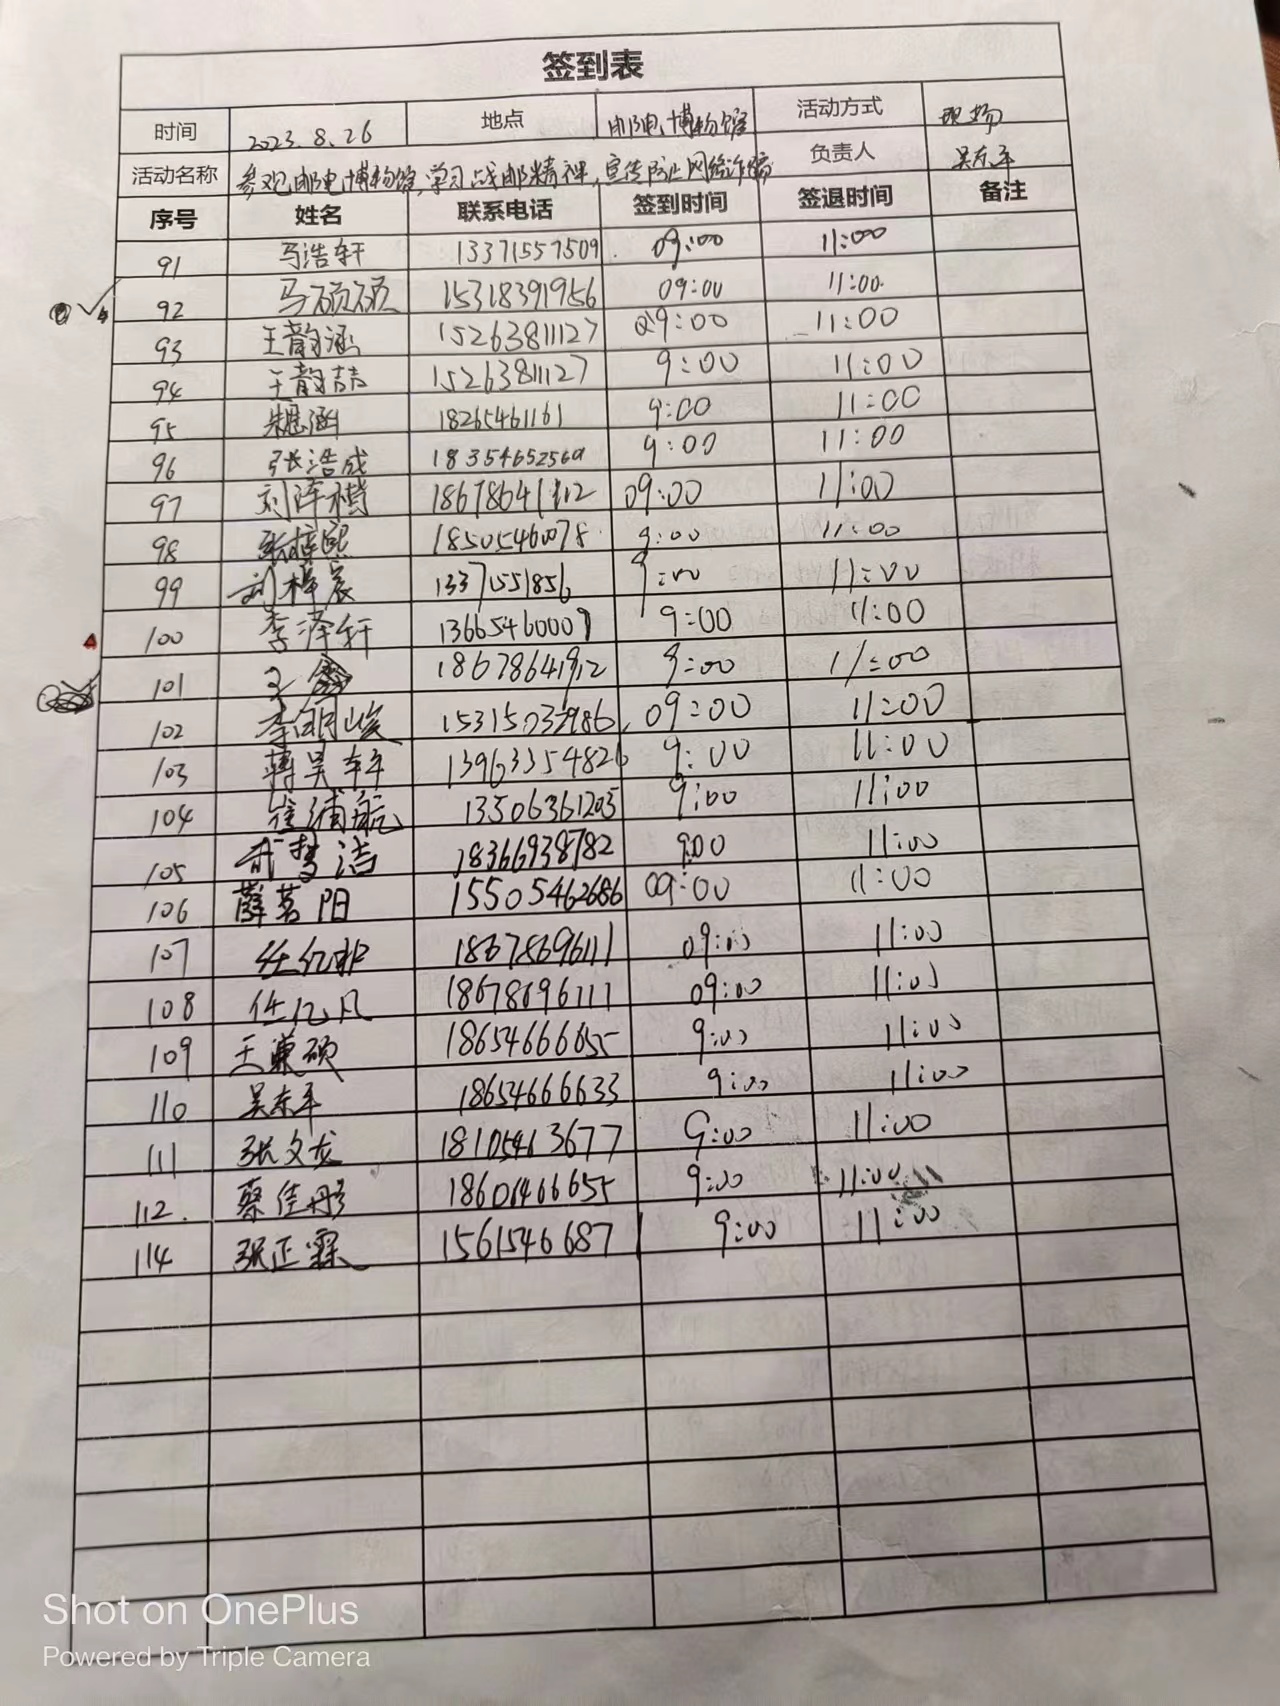 签到表
时间 2023.8.26 地点 邮电博物馆 活动方式 现场
活动名称 参观邮电博物馆,学习战邮精神,宣传防止网络诈骗 负责人 吴东平
序号 姓名 联系电话 签到时间 签退时间 备注
91 马浩轩 13371557509 09:00 11:00
92 马硕硕 15318391956 09:00 11:00
93 王韵涵 15263811127 09:00 11:00
94 王韵喆 15263811127 9:00 11:00
95 朱思涵 18265461161 9:00 11:00
96 张浩成 18354652569 9:00 11:00
97 刘泽楷 18678641912 09:00 11:00
98 张梓熙 18505460078 9:00 11:00
99 刘梓宸 13371551856 9:00 11:00
100 李泽轩 13665460009 9:00 11:00
101 18678641912 9:00 11:00
102 李明峻 15315032986 09:00 11:00
103 蒋昊轩 13963354826 9:00 11:00
104 崔浦航 13506361205 9:00 11:00
105 梦洁 18366938782 9:00 11:00
106 薛茗阳 15505462686 09:00 11:00
107 任亿 18678696111 09:00 11:00
108 任亿凡 18678696111 09:00 11:00
109 王 硕 18654666655 9:00 11:00
110 吴东平 18654666633 9:00 11:00
111 张文龙 18105463677 9:00 11:00
112. 蔡佳彤 18606466655 9:00 11:00
114 张正霖 15615466871 9:00 11:00
Shot on OnePlus
Powered by Triple Camera